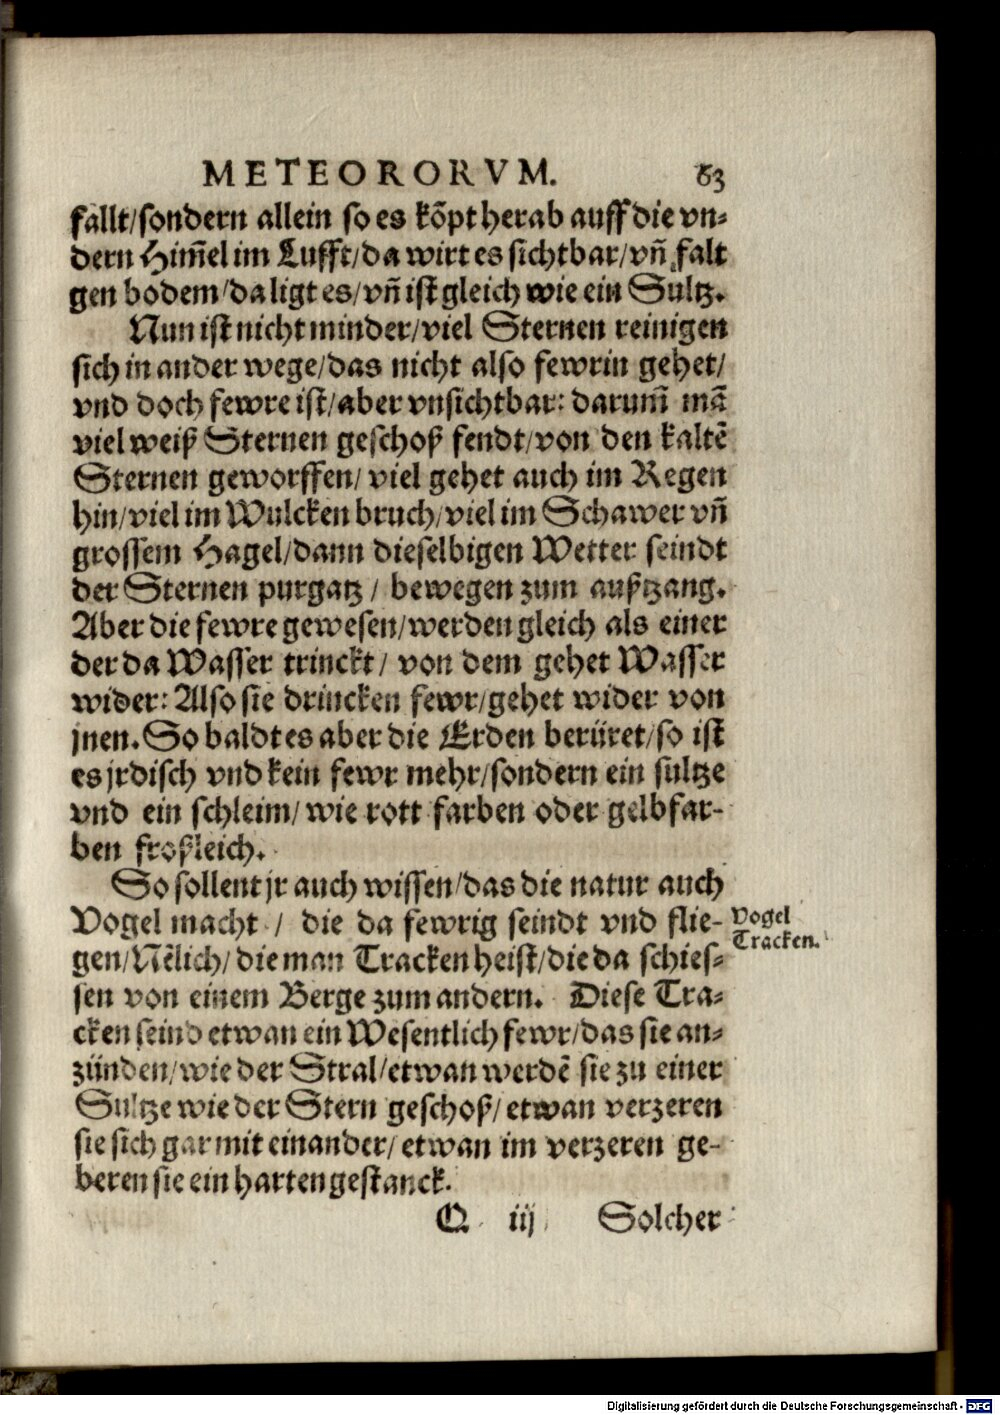 METEORORVM. 63
fallt/sondern allein so es kõpt herab auff die vn⸗
dern Him̃el im Lufft/da wirt es sichtbar/vñ falt
gen bodem/da ligt es/vñ ist gleich wie ein Sultz.
Nun ist nicht minder/viel Sternen reinigen
sich in ander wege/das nicht also fewrin gehet/
vnd doch fewre ist/aber vnsichtbar: darum̃ mã
viel weiß Sternen geschoß fendt/von den kaltẽ
Sternen geworffen/ viel gehet auch im Regen
hin/viel im Wulcken bruch/viel im Schawer vñ
grossem Hagel/dann dieselbigen Wetter seindt
der Sternen purgatz / bewegen zum außtzang.
Aber die fewre gewesen/werden gleich als einer
der da Wasser trinckt/ von dem gehet Wasser
wider: Also sie drincken fewr/gehet wider von
jnen. So baldt es aber die Erden berüret/so ist
es jrdisch vnd kein fewr mehr/sondern ein sultze
vnd ein schleim/ wie rott farben oder gelbfar-
ben froßleich.
So sollent jr auch wissen/das die natur auch
Vogel macht / die da fewrig seindt vnd flie-
gen/Nẽlich/die man Tracken heist/die da schies⸗
sen von einem Berge zum andern. Diese Tra⸗
cken seind etwan ein Wesentlich fewr/das sie an⸗
zünden/wie der Stral/etwan werdẽ sie zu einer
Sultze wie der Stern geschoß/etwan verzeren
sie sich gar mit einander/etwan im verzeren ge-
beren sie ein harten gestanck.
Vogel
Tracken.
Q iij Solcher
Digitalisierung gefördert durch die Deutsche Forschungsgemeinschaft - DFG